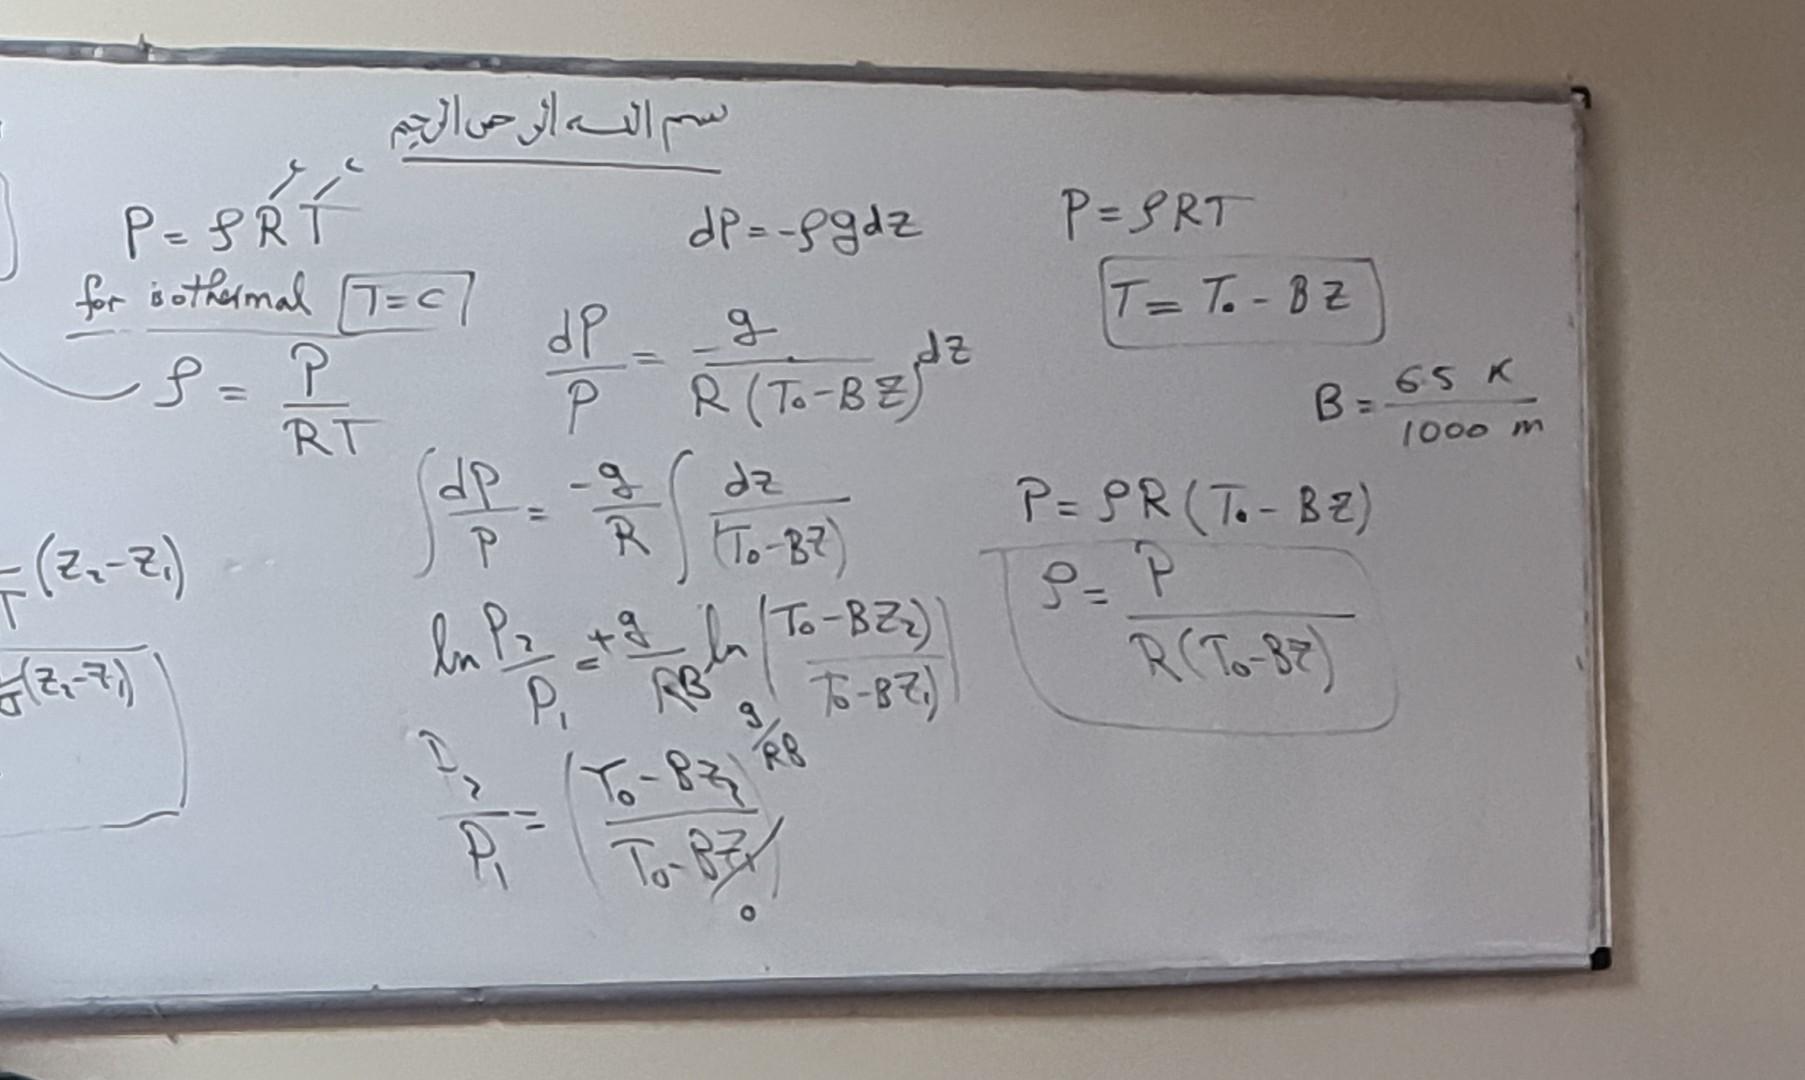 بسم الله الرحمن الرحيم
P = ρRT
c c
for isothermal T = C
ρ = P / RT
(Z₂-Z₁)
(Z₂-Z₁)
dP = -ρgdz
dP/P = -g / R(T₀-BZ) dz
∫ dP/P = -g/R ∫ dz / (T₀-BZ)
ln P₂/P₁ = +g/RB ln |(T₀-BZ₂) / (T₀-BZ₁)|
P₂/P₁ = ((T₀-BZ₂) / (T₀-BZ₁))^(g/RB)
0
P = ρRT
T = T₀ - BZ
B = 6.5 K / 1000 m
P = ρR(T₀ - BZ)
ρ = P / R(T₀-BZ)